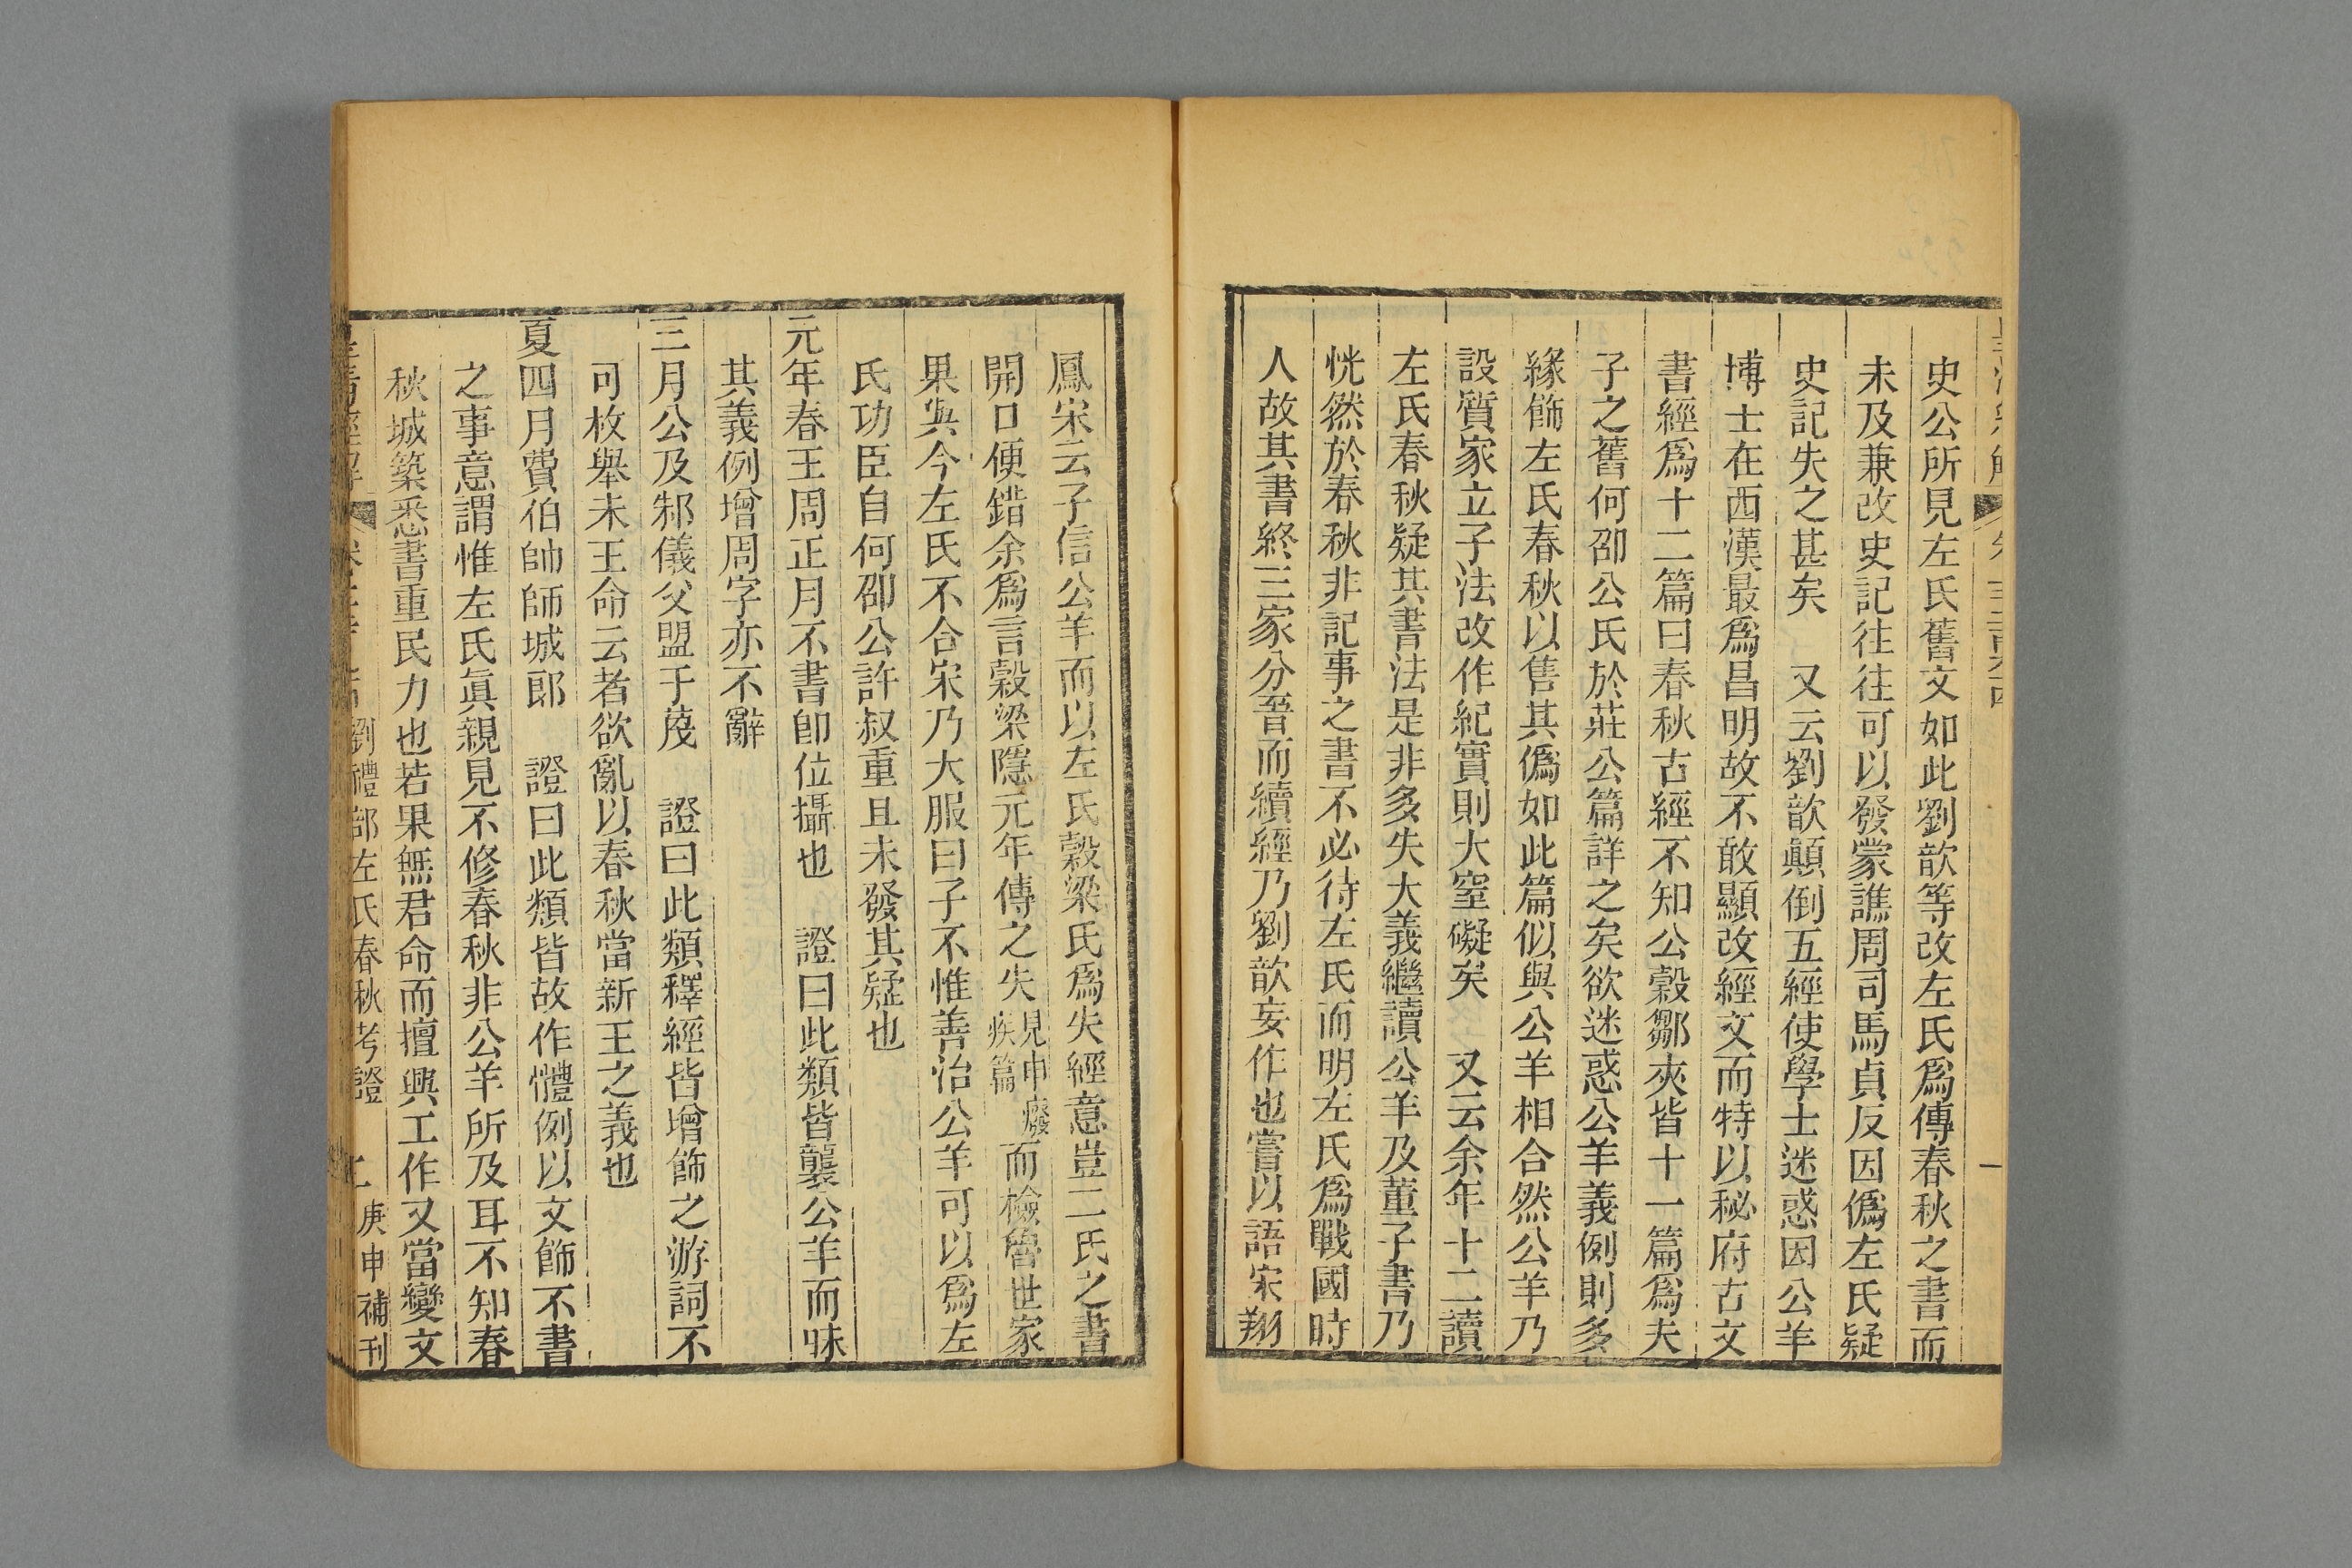 史公所見左氏舊文如此劉歆等改左氏爲傳春秋之書而
未及兼改史記往往可以發蒙譙周司馬貞反因僞左氏疑
史記失之甚矣　又云劉歆顛倒五經使學士迷惑因公羊
博士在西漢最爲昌明故不敢顯改經文而特以秘府古文
書經爲十二篇曰春秋古經不知公穀鄒夾皆十一篇爲夫
子之舊何邵公氏於莊公篇詳之矣欲迷惑公羊義例則多
緣飾左氏春秋以售其僞如此篇似與公羊相合然公羊乃
設質家立子法改作紀實則大窒礙矣　又云余年十二讀
左氏春秋疑其書法是非多失大義繼讀公羊及董子書乃
恍然於春秋非記事之書不必待左氏而明左氏爲戰國時
人故其書終三家分晉而續經乃劉歆妄作也嘗以語宋翔
鳳宋云子信公羊而以左氏穀梁氏爲失經意豈二氏之書
開口便錯余爲言穀梁隱元年傳之失見申廢疾篇而檢魯世家
果與今左氏不合宋乃大服曰子不惟善治公羊可以爲左
氏功臣自何邵公許叔重且未發其疑也
元年春王周正月不書卽位攝也　證曰此類皆襲公羊而昧
其義例增周字亦不辭
三月公及邾儀父盟于蔑　證曰此類釋經皆增飾之游詞不
可枚舉未王命云者欲亂以春秋當新王之義也
夏四月費伯帥師城郎　證曰此類皆故作體例以文飾不書
之事意謂惟左氏眞親見不修春秋非公羊所及耳不知春
秋城築悉書重民力也若果無君命而擅興工作又當變文
皇清經解
劉禮部左氏春秋考證
庚申補刊